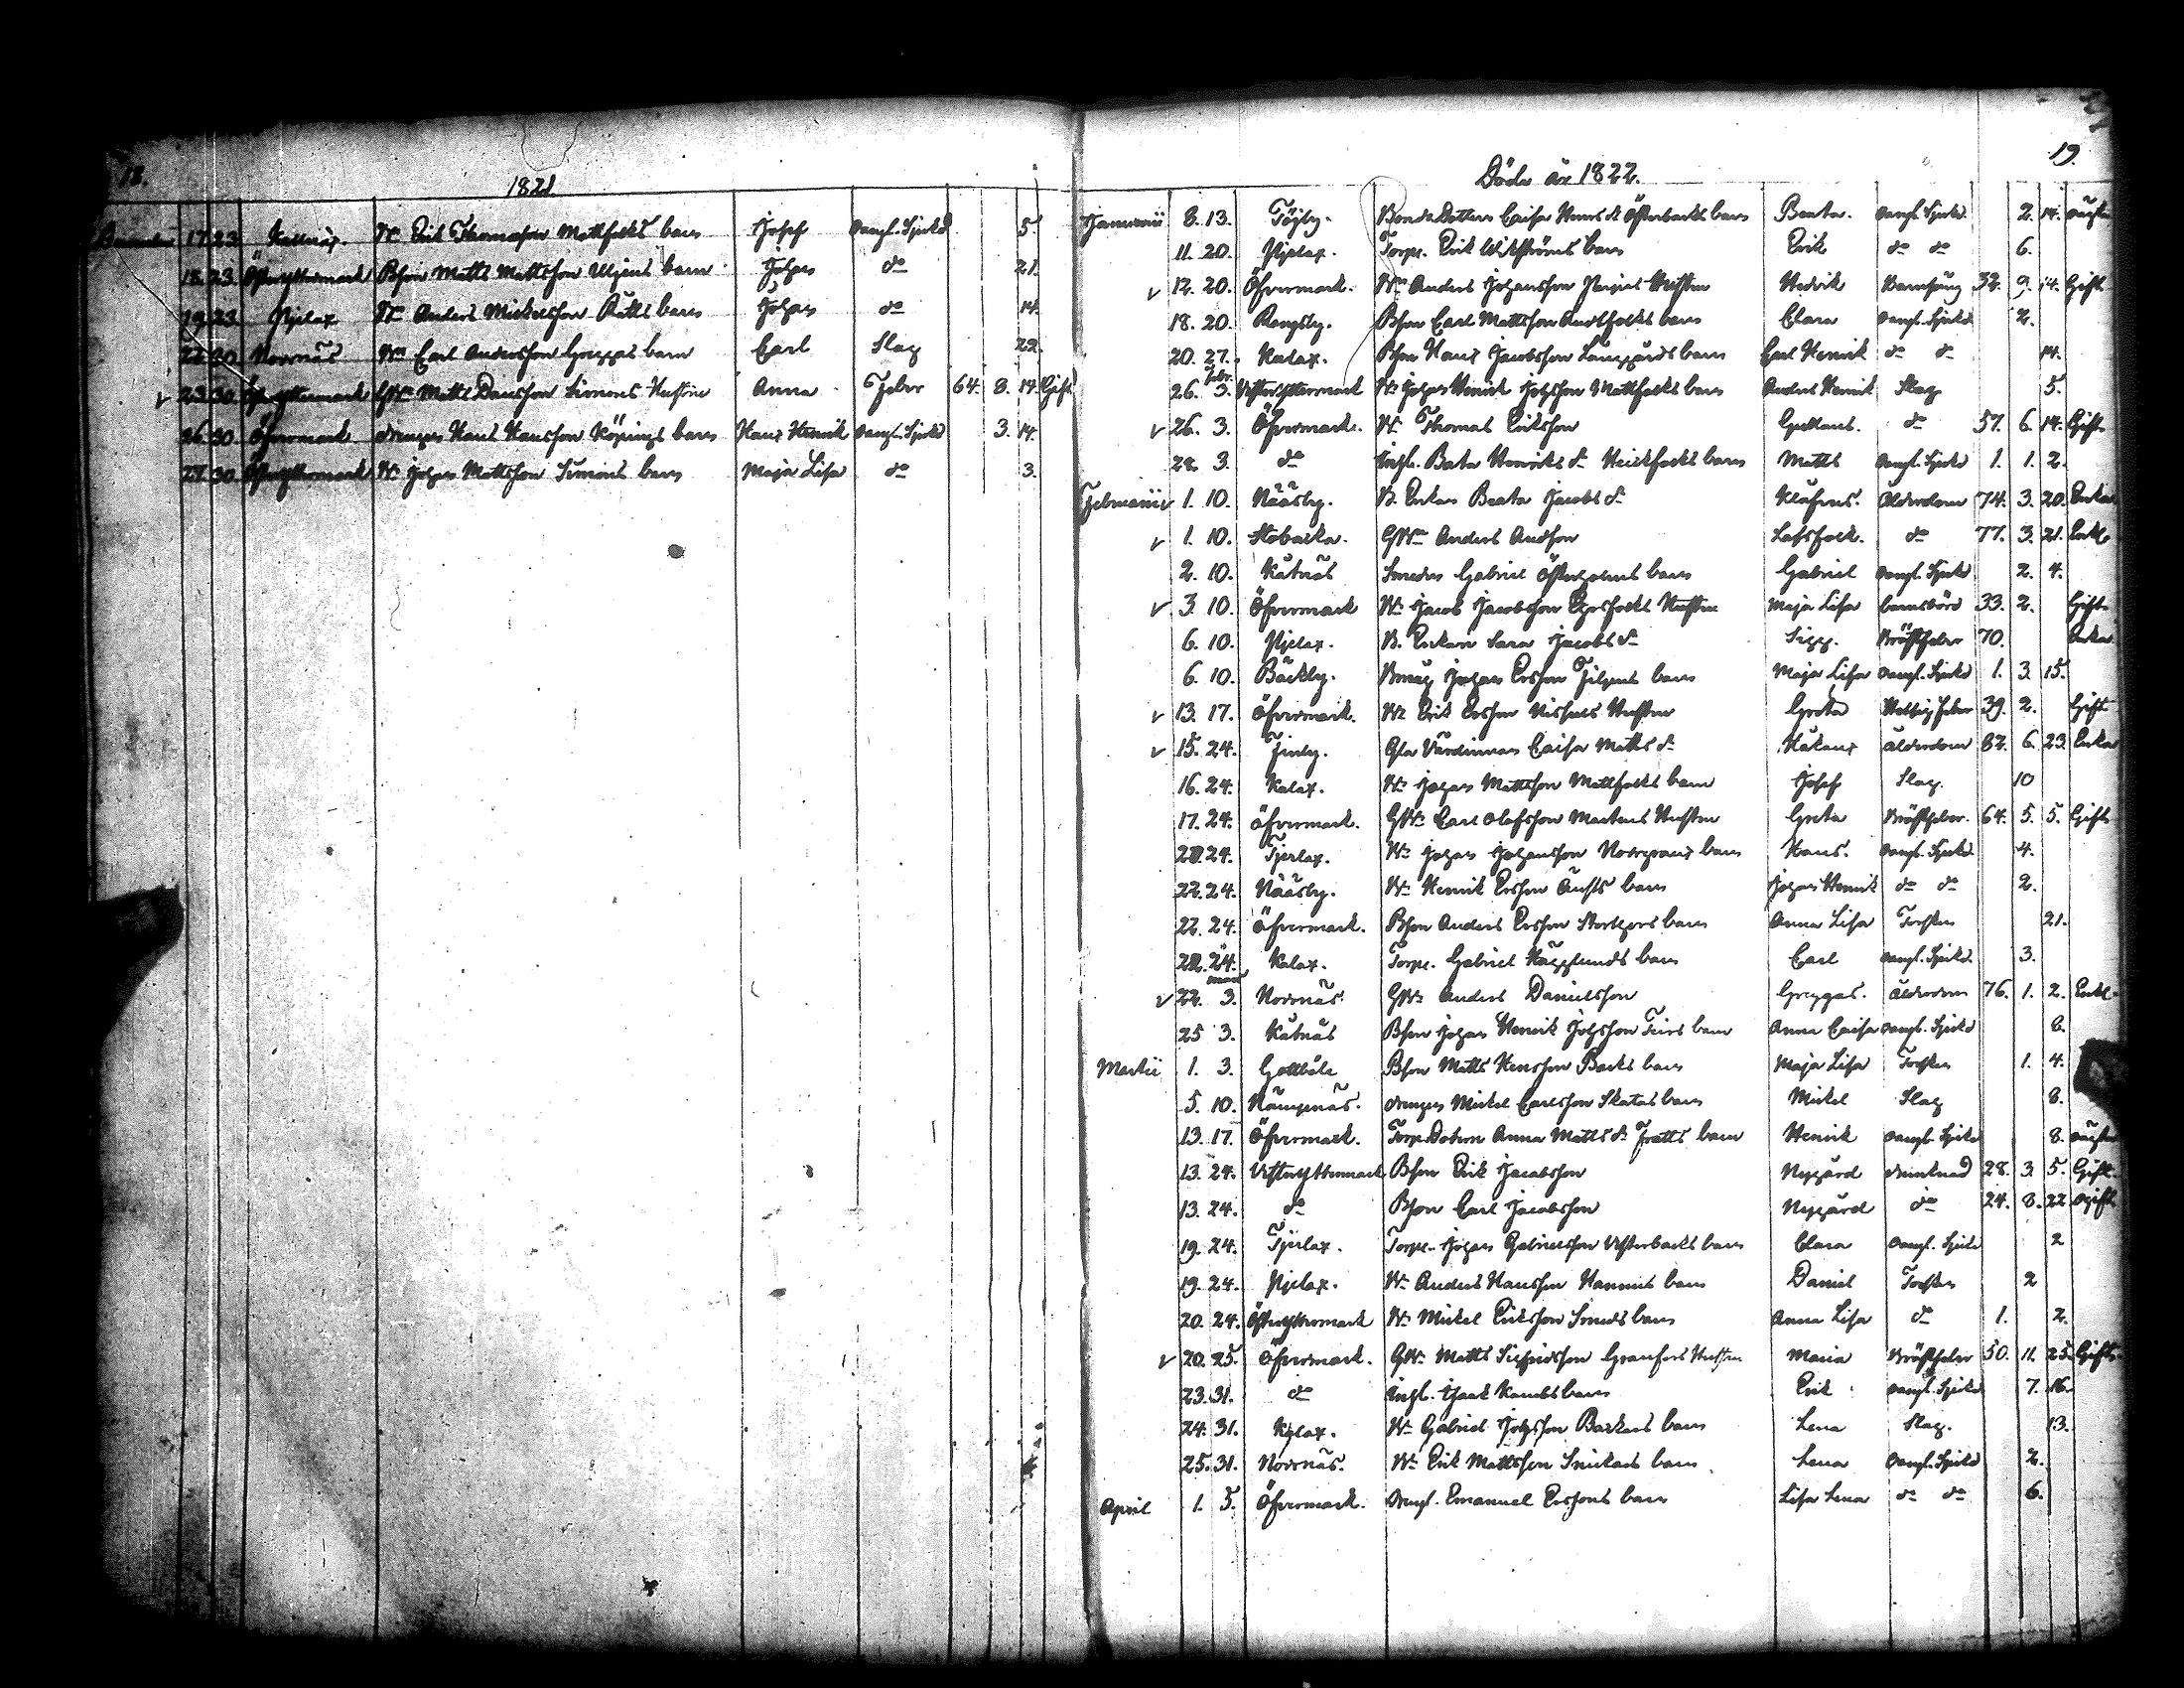 18.
1821
December 17. 23. Kallnäs. Bn Erik Thomasson Mattfolks barn Josef oangf. Sjukd 5.
18. 23. Östra yttermark Bson Matts Mattsson barn Johan do 21.
19. 23. Pjelax Bn Anders Mickelsson barn Johan do 14.
22. 30. Norrnäs Bn Carl Andersson Greggas barn Carl Slag 22.
23. 30. yttermark GBn Matts Danssons Simons Hustru Anna Feber 64. 8. 14. Gift
26. 30. Öfvermark drengen Hans Hansson Köpings barn Hans Henrik oangf. Sjukd 3. 14.
27. 30. Öster yttermark Bn Johan Mattsson Simons barn Maja Lisa do 3.
19.
Döde år 1822.
Januarii 8. 13. Töjby. Bonde Dottern Caisa Hans dr Österbacks barn Beata. oangf. Sjukd. 2. 14. oägta
11. 20. Pjelax. Torp. Erik Wikströms barn Erik do do 6.
12. 20. Öfvermark. Bn Anders Johansson Hustru Hedvik Barnsäng 32. 9. 14. Gift
18. 20. Rangsby. Bson Carl Mattsson barn Clara oangf. Sjukd 2.
20. 27. Kalax. Bson Hans Jacobsson Långgårds barn Carl Henrik do do 14.
26. Febr. 3. Vester yttermark Bn Johan Henrik Johsson Mattfolks barn Anders Henrik Slag 5.
26. 3. Öfvermark. Bn Thomas Eriksson Guttans. do 57. 6. 14. Gift
28. 3. do Beata Henriks dr barn Matts oangf. Sjukd 1. 1. 2.
Februarii 1. 10. Nääsby. B. Enkan Beata Jacobs dr Klåfrus. Ålderdom 74. 3. 20. Enka
1. 10. Stobacka. GBn Anders Andsson Lassfolk. do 77. 3. 21. Enkl.
2. 10. Kåtnäs Smeden Gabriel Österholms barn Gabriel oangf. Sjukd 2. 4.
3. 10. Öfvermark Bn Jacob Jacobsson Hustru Maja Lisa barnsbörd 33. 2. Gift
6. 10. Pjelax. B. Enkan Sara Jacobs dr Sigg. Bröstfeber 70. Enka
6. 10. Bäckby. Johan Ersson barn Maja Lisa oangf. Sjukd 1. 3. 15.
13. 17. Öfvermark. Bn Erik Ersson Hustru Greta 39. 2. Gift
15. 24. Finby. Gla Värdinnan Caisa Matts dr Håkans ålderdom 82. 6. 23. Enka
16. 24. Kalax. Bn Johan Mattsson Mattfolks barn Josef Slag. 10
17. 24. Öfvermark. GBn Carl Olofsson Martens Hustru Greta Bröstfeber. 64. 5. 5. Gift
20. 24. Tjerlax. Bn Johan Johansson Norrgrans barn Hans. oangf. Sjukd. 4.
22. 24. Nääsby. Bn Henrik Ersson barn Johan Henrik do do 2.
22. 24. Öfvermark. Bson Anders Ersson Storthors barn Anna Lisa Torsken 21.
22. 24. Kalax. Torp. Gabriel Hägglunds barn Carl oangf. Sjukd. 3.
22. mars 3. Norrnäs. GBn Anders Danielsson Greggas. ålderdom 76. 1. 2. Enkl.
25 3. Kåtnäs Bson Johan Henrik Johsson barn Anna Caisa oangf. Sjukd 8.
Martii 1. 3. Gottböle Bson Matts Hansson Backs barn Maja Lisa Torsken 1. 4.
5. 10. Nämpnäs. drengen Mickel Carlsson Skatas barn Mickel Slag 8.
13. 17. Öfvermark. Torp. Dotern Anna Matts dr Fratts barn Henrik oangf. Sjukd 8. oägta
13. 24. Vester yttermark Bson Erik Jacobsson Nygård drunknad 28. 3 5. Gift.
13. 24. do Bson Carl Jacobsson Nygård do 24. 8. 22 ogift
19. 24. Tjerlax. Torp. Johan Gabrielsson Vesterbacks barn Clara oangf. Sjukd 2
19. 24. Pjelax. Bn Anders Hansson Hannus barn Daniel Torsken 2
20. 24. Öster yttermark Bn Mickel Eriksson Smeds barn Anna Lisa do 1. 2.
20. 25. Öfvermark. GBn Matts Sigfridsson Granfors Hustru Maria Bröstfeber 50. 11. 25. Gift.
23. 31. do Isaak barn Erik oangf. Sjukd 7. 16.
24. 31. Kalax. Bn Gabriel Johsson barn Lena Slag. 13.
25. 31. Norrnäs. Bn Erik Mattsson Snickars barn Lena oangf. Sjukd 2.
April 1. 5. Öfvermark. Emanuel Erssons barn Lisa Lena do do 6.